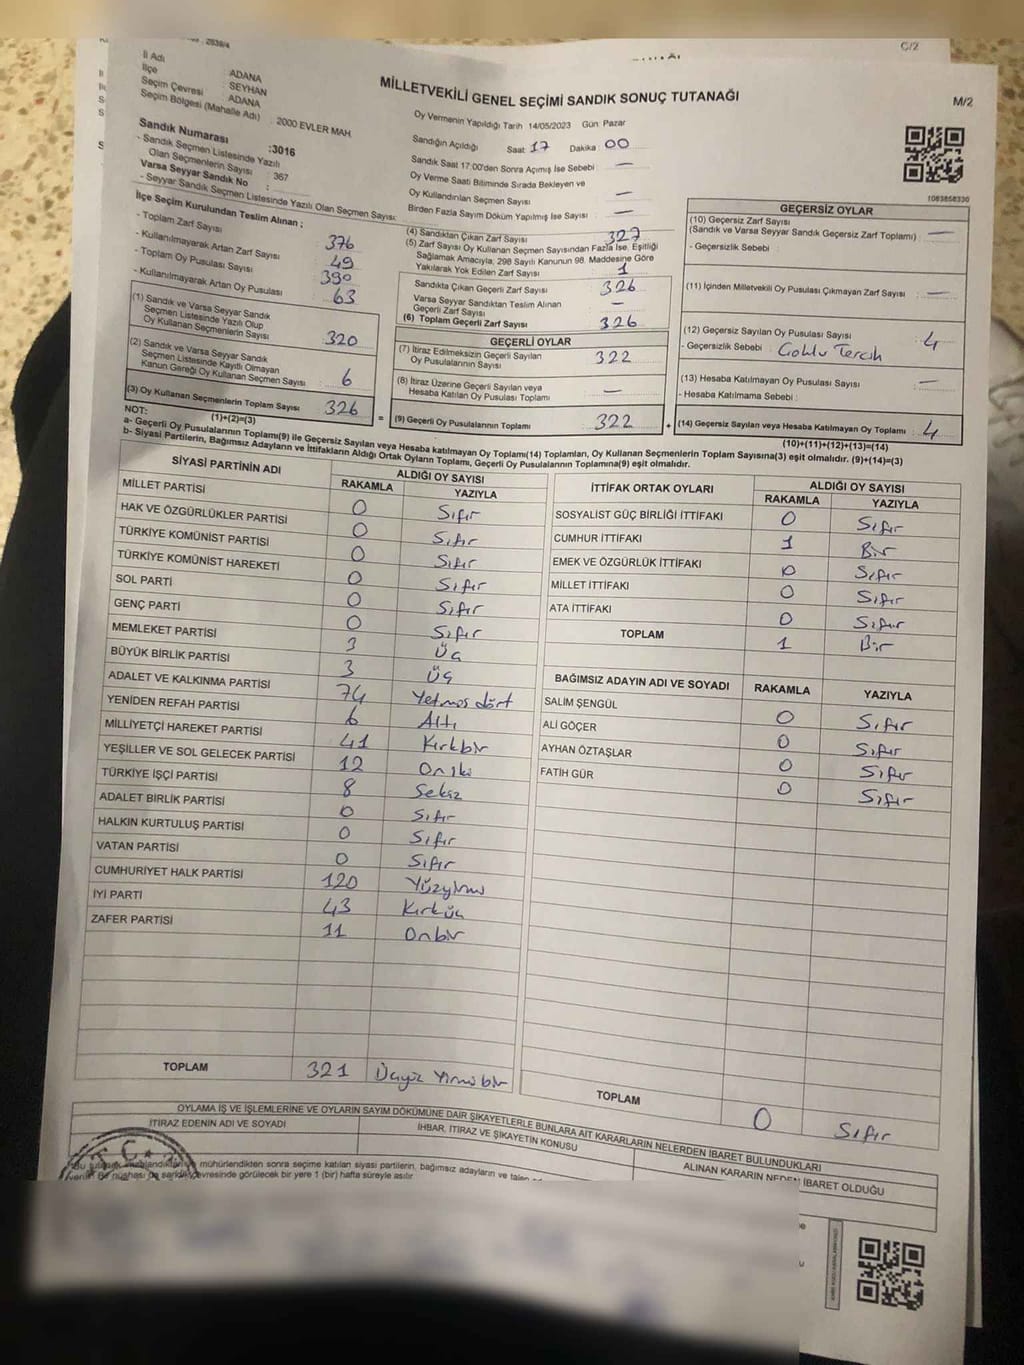 2839/4
C/2
İl Adı : ADANA
İlçe : SEYHAN
Seçim Çevresi : ADANA
Seçim Bölgesi (Mahalle Adı) : 2000 EVLER MAH
MİLLETVEKİLİ GENEL SEÇİMİ SANDIK SONUÇ TUTANAĞI
M/2
Sandık Numarası :3016
- Sandık Seçmen Listesinde Yazılı
Olan Seçmenlerin Sayısı : 367
Varsa Seyyar Sandık No :
- Seyyar Sandık Seçmen Listesinde Yazılı Olan Seçmen Sayısı:
Oy Vermenin Yapıldığı Tarih 14/05/2023 Gün: Pazar
Sandığın Açıldığı Saat : 17 Dakika : 00
Sandık Saat 17:00'den Sonra Açımış İse Sebebi : —
Oy Verme Saati Bitiminde Sırada Bekleyen ve
Oy Kullandırılan Seçmen Sayısı : —
Birden Fazla Sayım Döküm Yapılmış İse Sayısı : —
1083858330
İlçe Seçim Kurulundan Teslim Alınan ;
- Toplam Zarf Sayısı : 376
- Kullanılmayarak Artan Zarf Sayısı : 49
- Toplam Oy Pusulası Sayısı : 390
- Kullanılmayarak Artan Oy Pusulası : 63
(1) Sandık ve Varsa Seyyar Sandık
Seçmen Listesinde Yazılı Olup
Oy Kullanan Seçmenlerin Sayısı : 320
(2) Sandık ve Varsa Seyyar Sandık
Seçmen Listesinde Kayıtlı Olmayan
Kanun Gereği Oy Kullanan Seçmen Sayısı : 6
(3) Oy Kullanan Seçmenlerin Toplam Sayısı : 326
(1)+(2)=(3)
(4) Sandıktan Çıkan Zarf Sayısı : 327
(5) Zarf Sayısı Oy Kullanan Seçmen Sayısından Fazla İse, Eşitliği
Sağlamak Amacıyla; 298 Sayılı Kanunun 98. Maddesine Göre
Yakılarak Yok Edilen Zarf Sayısı : 1
Sandıkta Çıkan Geçerli Zarf Sayısı : 326
Varsa Seyyar Sandıktan Teslim Alınan
Geçerli Zarf Sayısı : —
(6) Toplam Geçerli Zarf Sayısı : 326
GEÇERLİ OYLAR
(7) İtiraz Edilmeksizin Geçerli Sayılan
Oy Pusulalarının Sayısı : 322
(8) İtiraz Üzerine Geçerli Sayılan veya
Hesaba Katılan Oy Pusulası Toplamı : —
= (9) Geçerli Oy Pusulalarının Toplamı : 322
GEÇERSİZ OYLAR
(10) Geçersiz Zarf Sayısı
(Sandık ve Varsa Seyyar Sandık Geçersiz Zarf Toplamı) : —
- Geçersizlik Sebebi :
(11) İçinden Milletvekili Oy Pusulası Çıkmayan Zarf Sayısı : —
(12) Geçersiz Sayılan Oy Pusulası Sayısı : 4
- Geçersizlik Sebebi : Çoklu Tercih
(13) Hesaba Katılmayan Oy Pusulası Sayısı : —
- Hesaba Katılmama Sebebi :
+ (14) Geçersiz Sayılan veya Hesaba Katılmayan Oy Toplamı : 4
(10)+(11)+(12)+(13)=(14)
NOT:
a- Geçerli Oy Pusulalarının Toplamı(9) ile Geçersiz Sayılan veya Hesaba katılmayan Oy Toplamı(14) Toplamları, Oy Kullanan Seçmenlerin Toplam Sayısına(3) eşit olmalıdır. (9)+(14)=(3)
b- Siyasi Partilerin, Bağımsız Adayların ve İttifakların Aldığı Ortak Oyların Toplamı, Geçerli Oy Pusulalarının Toplamına(9) eşit olmalıdır.
SİYASİ PARTİNİN ADI ALDIĞI OY SAYISI
RAKAMLA YAZIYLA
MİLLET PARTİSİ 0 Sıfır
HAK VE ÖZGÜRLÜKLER PARTİSİ 0 Sıfır
TÜRKİYE KOMÜNİST PARTİSİ 0 Sıfır
TÜRKİYE KOMÜNİST HAREKETİ 0 Sıfır
SOL PARTİ 0 Sıfır
GENÇ PARTİ 0 Sıfır
MEMLEKET PARTİSİ 3 Üç
BÜYÜK BİRLİK PARTİSİ 3 Üç
ADALET VE KALKINMA PARTİSİ 74 Yetmişdört
YENİDEN REFAH PARTİSİ 6 Altı
MİLLİYETÇİ HAREKET PARTİSİ 41 Kırkbir
YEŞİLLER VE SOL GELECEK PARTİSİ 12 Oniki
TÜRKİYE İŞÇİ PARTİSİ 8 Sekiz
ADALET BİRLİK PARTİSİ 0 Sıfır
HALKIN KURTULUŞ PARTİSİ 0 Sıfır
VATAN PARTİSİ 0 Sıfır
CUMHURİYET HALK PARTİSİ 120 Yüzyirmi
İYİ PARTİ 43 Kırküç
ZAFER PARTİSİ 11 Onbir
TOPLAM 321 Üçyüz Yirmibir
İTTİFAK ORTAK OYLARI ALDIĞI OY SAYISI
RAKAMLA YAZIYLA
SOSYALİST GÜÇ BİRLİĞİ İTTİFAKI 0 Sıfır
CUMHUR İTTİFAKI 1 Bir
EMEK VE ÖZGÜRLÜK İTTİFAKI 0 Sıfır
MİLLET İTTİFAKI 0 Sıfır
ATA İTTİFAKI 0 Sıfır
TOPLAM 1 Bir
BAĞIMSIZ ADAYIN ADI VE SOYADI RAKAMLA YAZIYLA
SALİM ŞENGÜL 0 Sıfır
ALİ GÖÇER 0 Sıfır
AYHAN ÖZTAŞLAR 0 Sıfır
FATİH GÜR 0 Sıfır
TOPLAM 0 Sıfır
OYLAMA İŞ VE İŞLEMLERİNE VE OYLARIN SAYIM DÖKÜMÜNE DAİR ŞİKAYETLERLE BUNLARA AİT KARARLARIN NELERDEN İBARET BULUNDUKLARI
İTİRAZ EDENİN ADI VE SOYADI İHBAR, İTİRAZ VE ŞİKAYETİN KONUSU ALINAN KARARIN NEDEN İBARET OLDUĞU
T.C.
mühürlendikten sonra seçime katılan siyasi partilerin, bağımsız adayların ve
çevresinde görülecek bir yere 1 (bir) hafta süreyle asılır.